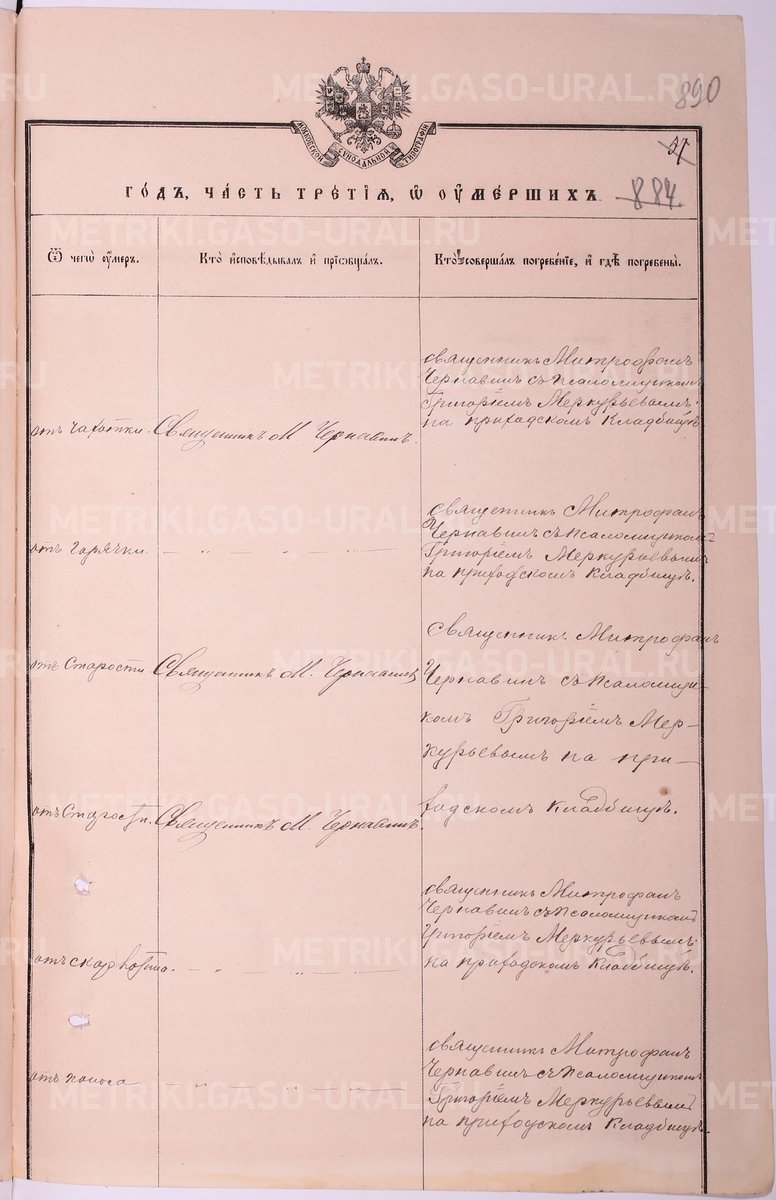 890
МОСКОВСКОЙ СѴНОДАЛЬНОЙ ТИПОГРАФІИ
37
884.
ГОДЪ, ЧАСТЬ ТРЕТІѦ, Ѡ ОУМЕРШИХЪ.
Ѿ чегѡ оумеръ.
Кто исповѣдывалъ и пріѡбщалъ.
Кто совершалъ погребеніе, и гдѣ погребены.
отъ чахотки.
Священникъ М. Чернавинъ.
священникъ Митрофанъ
Чернавинъ съ псаломщикомъ
Григоріемъ Меркурьевымъ
на приходскомъ кладбищѣ
отъ горячки.
— „ — „ — „ —
священникъ Митрофанъ
Чернавинъ съ псаломщикомъ
Григоріемъ Меркурьевымъ
на приходскомъ кладбищѣ.
отъ старости
Священникъ М. Чернавинъ
священникъ Митрофанъ
Чернавинъ съ псаломщи-
комъ Григоріемъ Мер-
курьевымъ на при-
ходскомъ кладбищѣ.
отъ старости.
Священникъ М. Чернавинъ.
отъ скарлотина.
— „ — „ — „ —
священникъ Митрофанъ
Чернавинъ съ псаломщикомъ
Григоріемъ Меркурьевымъ
на приходскомъ кладбищѣ.
отъ поноса
— „ — „ — „ —
священникъ Митрофанъ
Чернавинъ съ псаломщикомъ
Григоріемъ Меркурьевымъ
на приходскомъ кладбищѣ.
METRIKI.GASO-URAL.RU